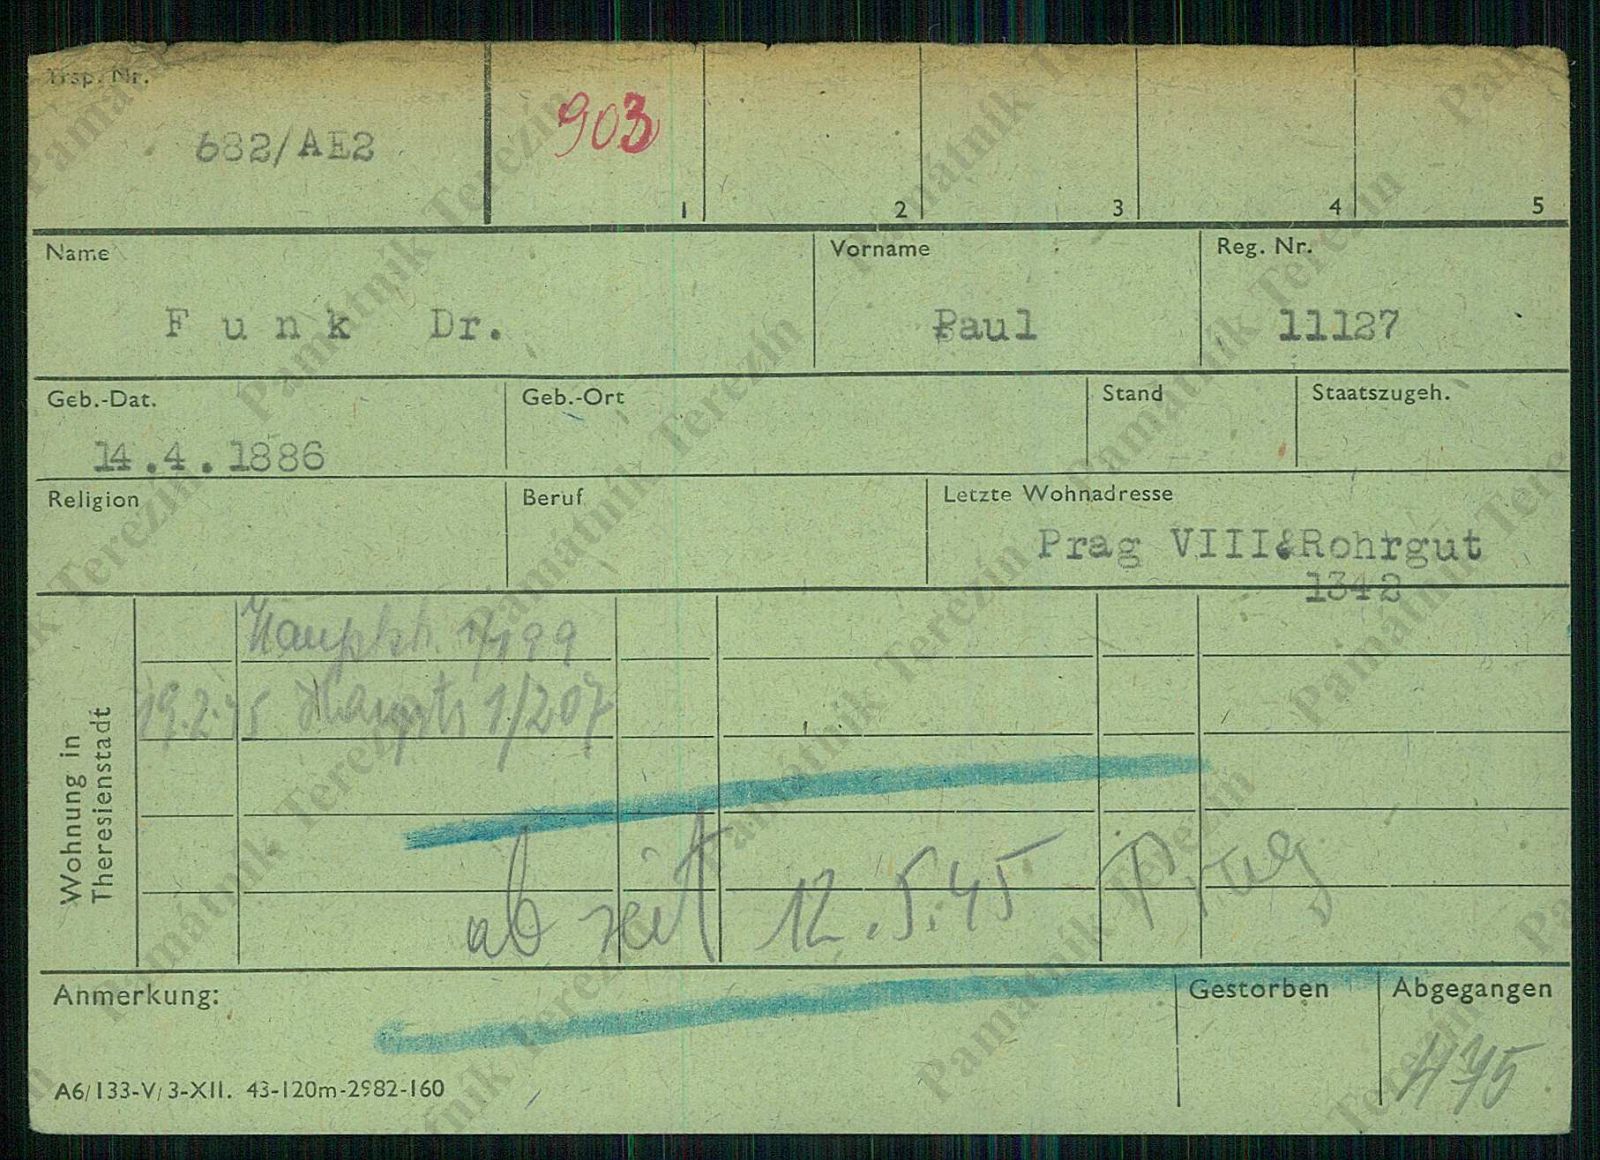 Trsp. Nr.
682/AE2
903
1 2 3 4 5
Name
Vorname
Reg. Nr.
Funk Dr.
Paul
11127
Geb.-Dat.
Geb.-Ort
Stand
Staatszugeh.
14.4.1886
Religion
Beruf
Letzte Wohnadresse
Prag VIII Rohrgut
1342
Wohnung in
Theresienstadt
Hauptstr. 1/199
19.2.45 Hauptstr 1/207
ab seit 12.5.45 Prag
Anmerkung:
Gestorben
Abgegangen
A6/133-V/3-XII. 43-120m-2982-160
Památník Terezín